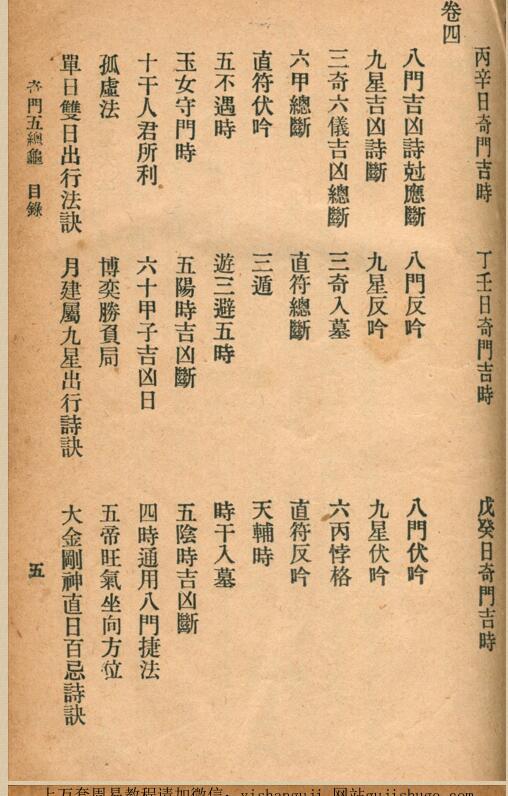 丙辛日奇門吉時
丁壬日奇門吉時
戊癸日奇門吉時
卷四
八門吉凶詩尅應斷
八門反吟
八門伏吟
九星吉凶詩斷
九星反吟
九星伏吟
三奇六儀吉凶總斷
三奇入墓
六丙悖格
六甲總斷
直符總斷
直符反吟
直符伏吟
三遁
天輔時
五不遇時
遊三避五時
時干入墓
玉女守門時
五陽時吉凶斷
五陰時吉凶斷
十干人君所利
六十甲子吉凶日
四時通用八門捷法
孤虛法
博奕勝負局
五帝旺氣坐向方位
單日雙日出行法訣
月建屬九星出行詩訣
大金剛神直日百忌詩訣
奇門五總龜 目錄
五
上万套周易教程请加微信：yishanguji 网站gujishuge.com